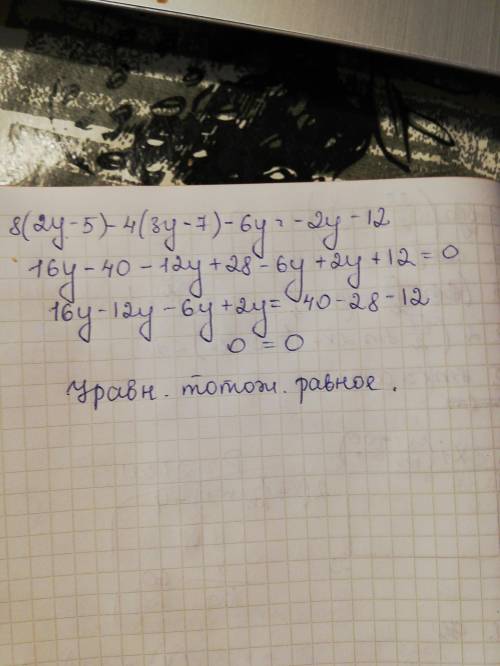 8(2y-5)-4(3y-7)-6y=-2y-12
16y-40-12y+28-6y+2y+12=0
16y-12y-6y+2y= 40-28-12
0 = 0
Уравн. тотож. равное.